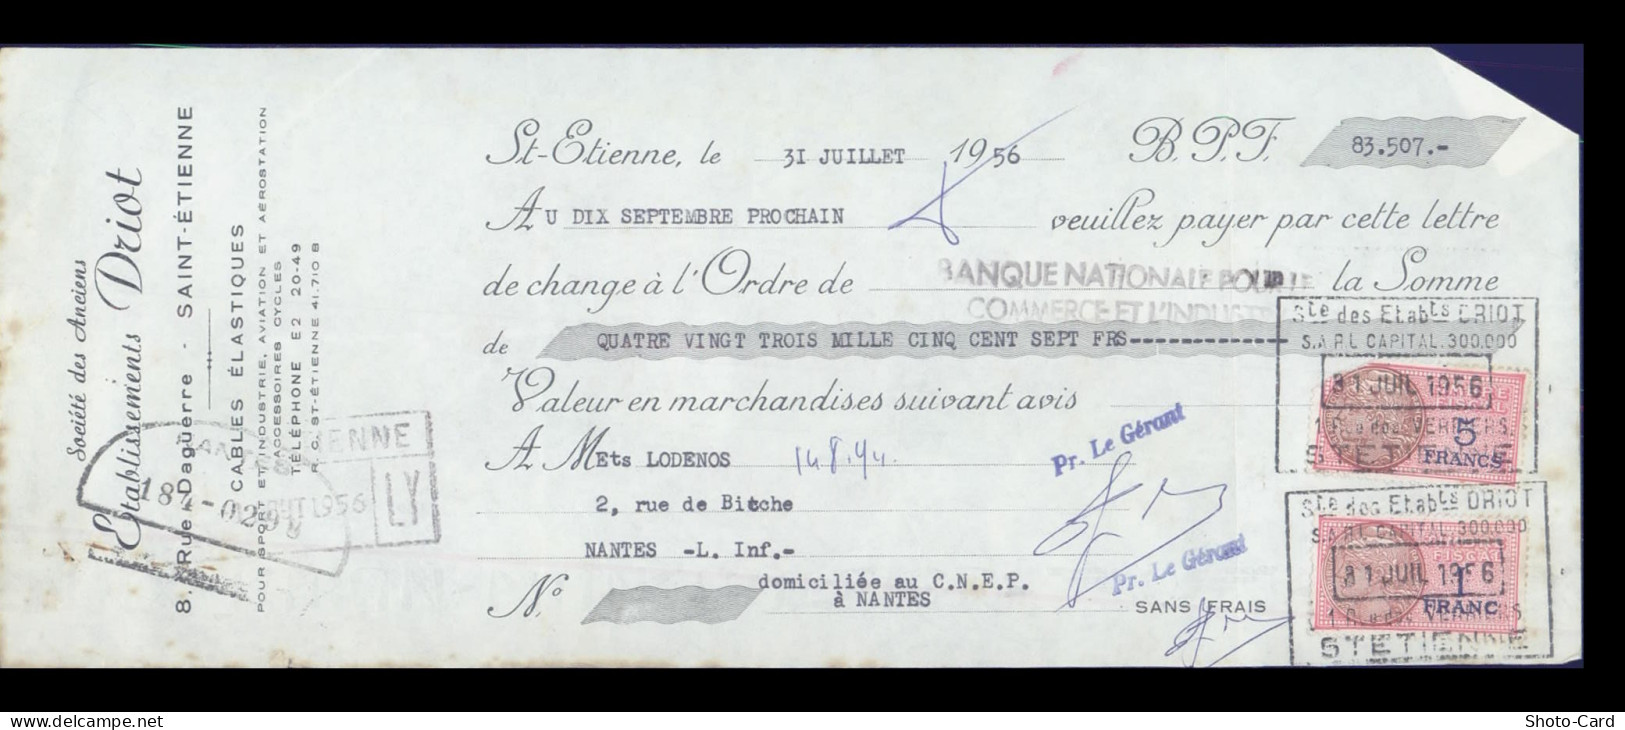 Société des Anciens
Etablissements Driot
8, Rue Daguerre - SAINT-ÉTIENNE
CABLES ÉLASTIQUES
POUR SPORT ET INDUSTRIE, AVIATION ET AÉROSTATION
ACCESSOIRES CYCLES
TÉLÉPHONE E2 20-49
R. C. ST-ÉTIENNE 41.710 B
St-Etienne, le 31 JUILLET 1956 B.P.F. 83.507.-
AU DIX SEPTEMBRE PROCHAIN veuillez payer par cette lettre
de change à l'Ordre de BANQUE NATIONALE POUR LE la Somme
COMMERCE ET L'INDUST
de QUATRE VINGT TROIS MILLE CINQ CENT SEPT FRS
Valeur en marchandises suivant avis
A Mets LODENOS
2, rue de Bitche
NANTES -L. Inf.-
No
domiciliée au C.N.E.P.
à NANTES
SANS FRAIS
Pr. Le Gérant
Pr. Le Gérant
Sté des Etabts DRIOT
S.A.R.L CAPITAL.300.000
31 JUIL 1956
5
FRANCS
ST ETIENNE
Sté des Etabts DRIOT
S.A.R.L CAPITAL.300.000
FISCAL
31 JUIL 1956
1
FRANC
ST ETIENNE
1956
LY
Shoto-Card
www.delcampe.net